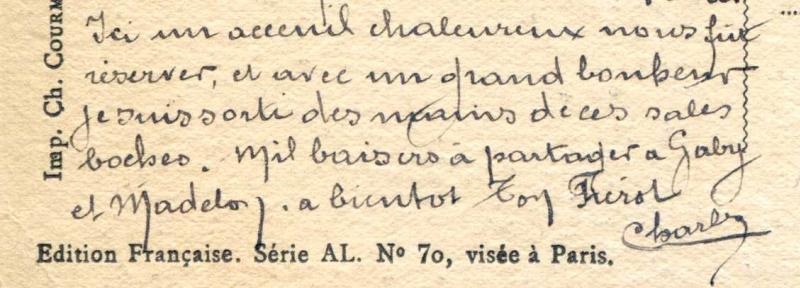 Ici un acceuil chaleureux nous fut
réserver, et avec un grand bonheur
je suis sorti des mains de ces sales
boches. Mil baisers à partager a Gaby
et Madelon. a bientot Ton Frérot
Charles
Edition Française. Série AL. Nº 70, visée à Paris.
Imp. Ch. COURM